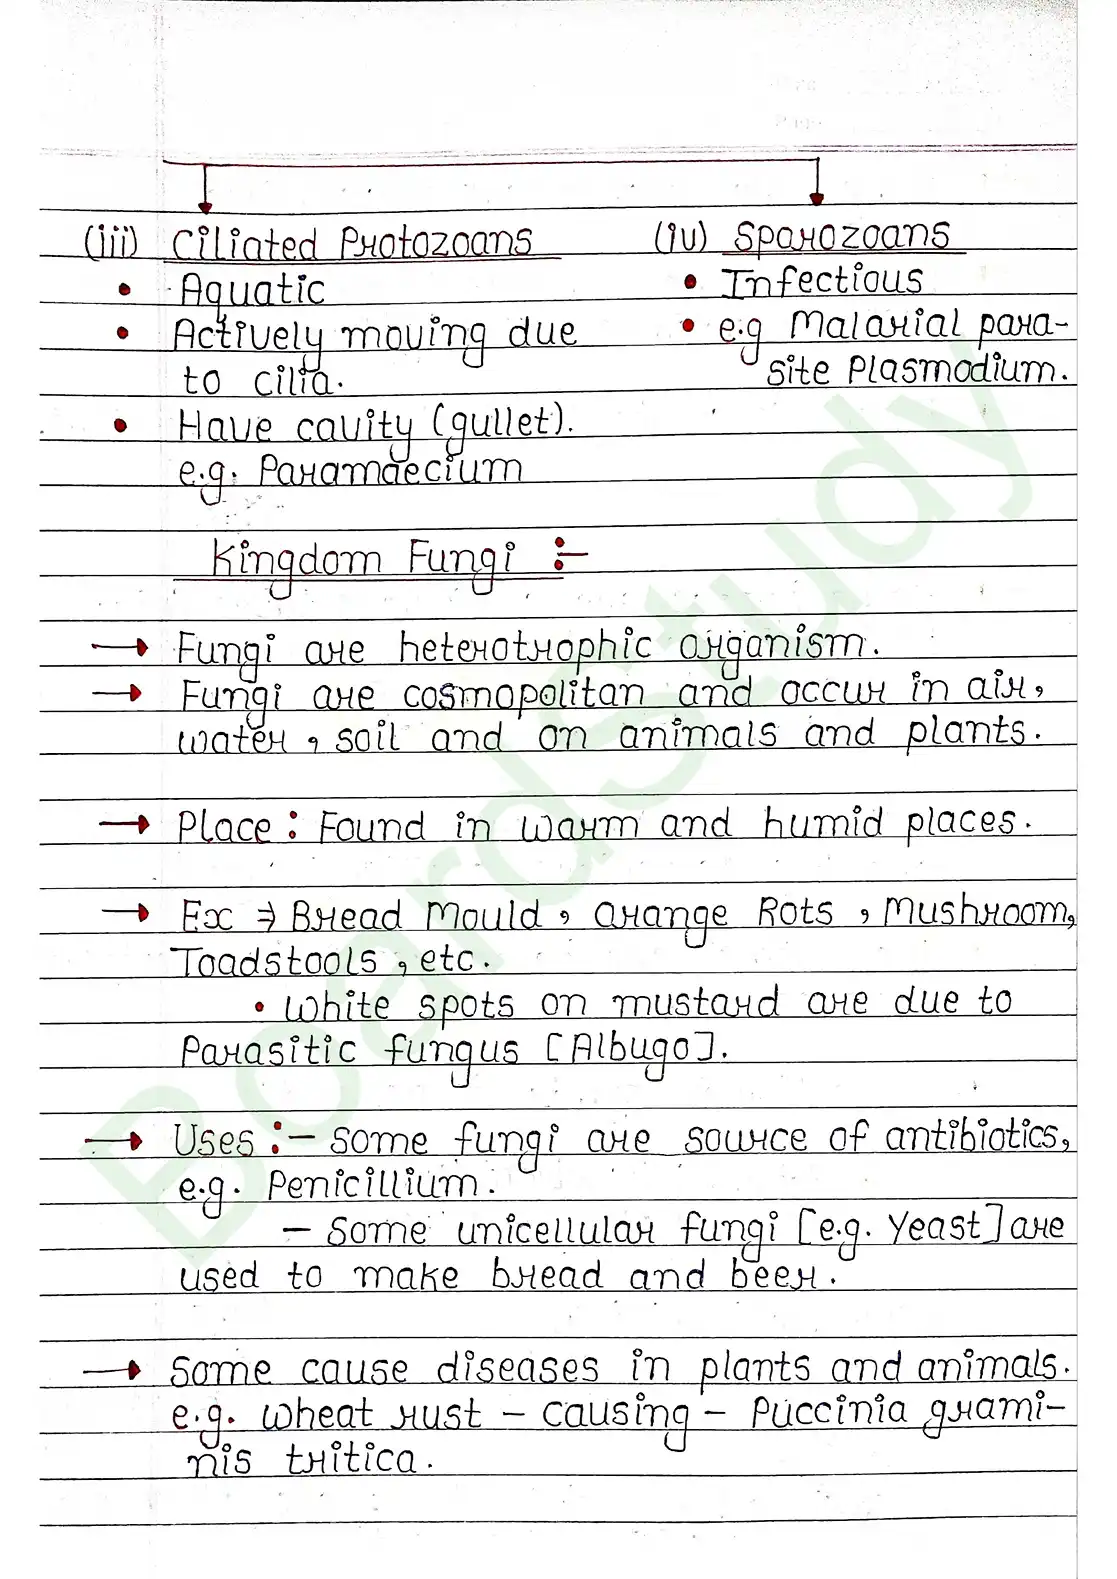 (iii) Ciliated Protozoans
• Aquatic
• Actively moving due
to cilia.
• Have cavity (gullet).
e.g. Paramaecium
(iv) Sporozoans
• Infectious
• e.g Malarial para-
site Plasmodium.
Kingdom Fungi :-
→ Fungi are heterotrophic organism.
→ Fungi are cosmopolitan and occur in air,
water, soil and on animals and plants.
→ Place : Found in warm and humid places.
→ Ex ⇒ Bread Mould, orange Rots, Mushroom,
Toadstools, etc.
• White spots on mustard are due to
Parasitic fungus [Albugo].
→ Uses :- Some fungi are source of antibiotics,
e.g. Penicillium.
- Some unicellular fungi [e.g. Yeast] are
used to make bread and beer.
→ Some cause diseases in plants and animals.
e.g. Wheat rust - causing - Puccinia grami-
nis tritica.
BoardStudy